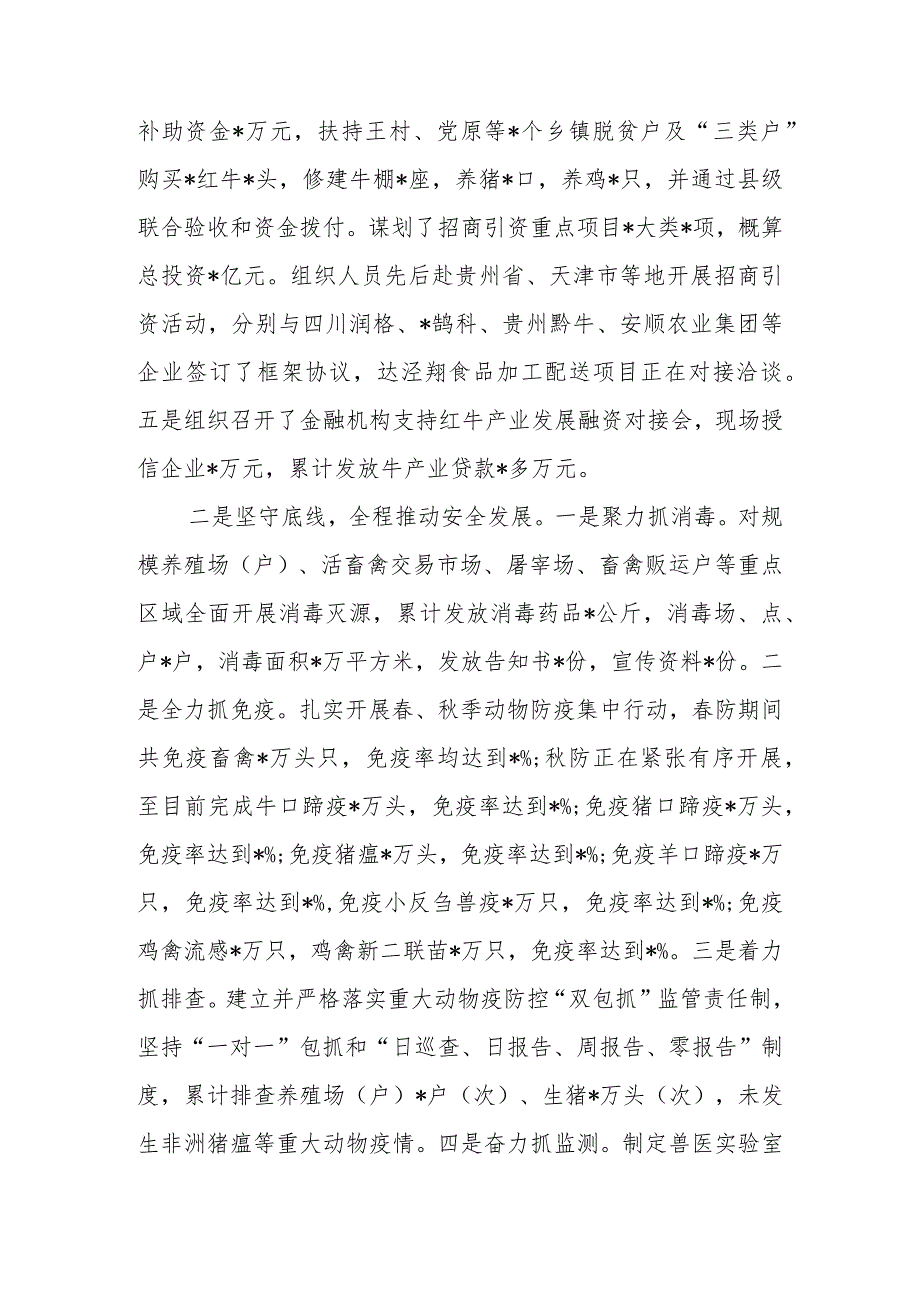 补助资金*万元，扶持王村、党原等*个乡镇脱贫户及“三类户”
购买*红牛*头，修建牛棚*座，养猪*口，养鸡*只，并通过县级
联合验收和资金拨付。谋划了招商引资重点项目*大类*项，概算
总投资*亿元。组织人员先后赴贵州省、天津市等地开展招商引
资活动，分别与四川润格、*鹄科、贵州黔牛、安顺农业集团等
企业签订了框架协议，达泾翔食品加工配送项目正在对接洽谈。
五是组织召开了金融机构支持红牛产业发展融资对接会，现场授
信企业*万元，累计发放牛产业贷款*多万元。
二是坚守底线，全程推动安全发展。一是聚力抓消毒。对规
模养殖场（户）、活畜禽交易市场、屠宰场、畜禽贩运户等重点
区域全面开展消毒灭源，累计发放消毒药品*公斤，消毒场、点、
户*户，消毒面积*万平方米，发放告知书*份，宣传资料*份。二
是全力抓免疫。扎实开展春、秋季动物防疫集中行动，春防期间
共免疫畜禽*万头只，免疫率均达到*%;秋防正在紧张有序开展，
至目前完成牛口蹄疫*万头，免疫率达到*%;免疫猪口蹄疫*万头，
免疫率达到*%;免疫猪瘟*万头，免疫率达到*%;免疫羊口蹄疫*万
只，免疫率达到*%,免疫小反刍兽疫*万只，免疫率达到*%;免疫
鸡禽流感*万只，鸡禽新二联苗*万只，免疫率达到*%。三是着力
抓排查。建立并严格落实重大动物疫防控“双包抓”监管责任制，
坚持“一对一”包抓和“日巡查、日报告、周报告、零报告”制
度，累计排查养殖场（户）*户（次）、生猪*万头（次），未发
生非洲猪瘟等重大动物疫情。四是奋力抓监测。制定兽医实验室